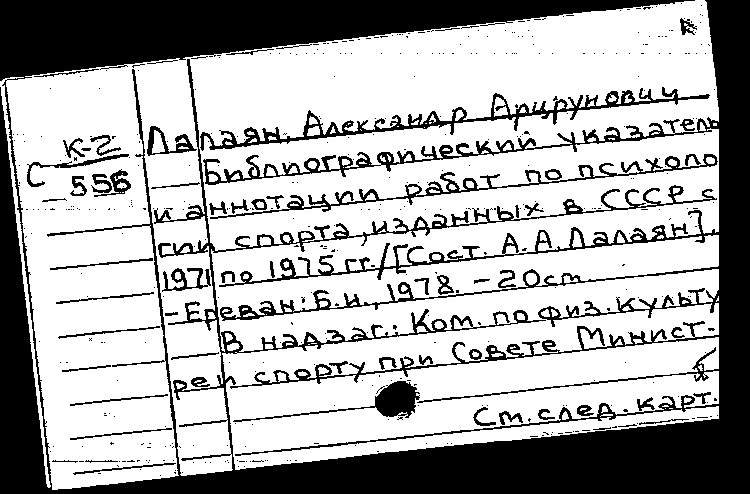 К-2
С 556
Лалаян, Александр Арцрунович
Библиографический указатель
и аннотации работ по психоло
гии спорта, изданных в СССР с
1971 по 1975 гг./[Сост. А.А. Лалаян].
-Ереван: Б.и., 1978. -20см
В надзаг.: Ком. по физ. культу
ре и спорту при Совете Минист-
См. след. карт.